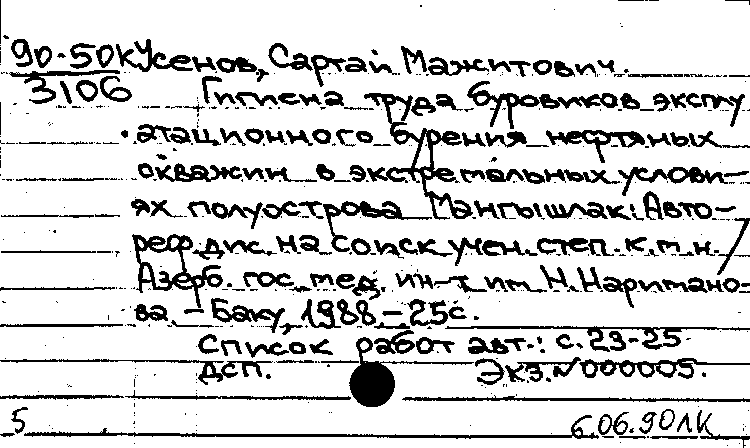 90-50к Усенов, Сартай Мажитович.
3106 Гигиена труда буровиков эксплу
атационного бурения нефтяных
скважин в экстремальных услови-
ях полуострова Мангышлак: Авто-
реф. дис. на соиск учен. степ. к.м.н. /
Азерб. гос. мед. ин-т им Н. Наримано-
ва. - Баку, 1988. - 25с.
Список работ авт.: с. 23-25
ДСП. Экз. N 000005.
5 6.06.90 ЛК